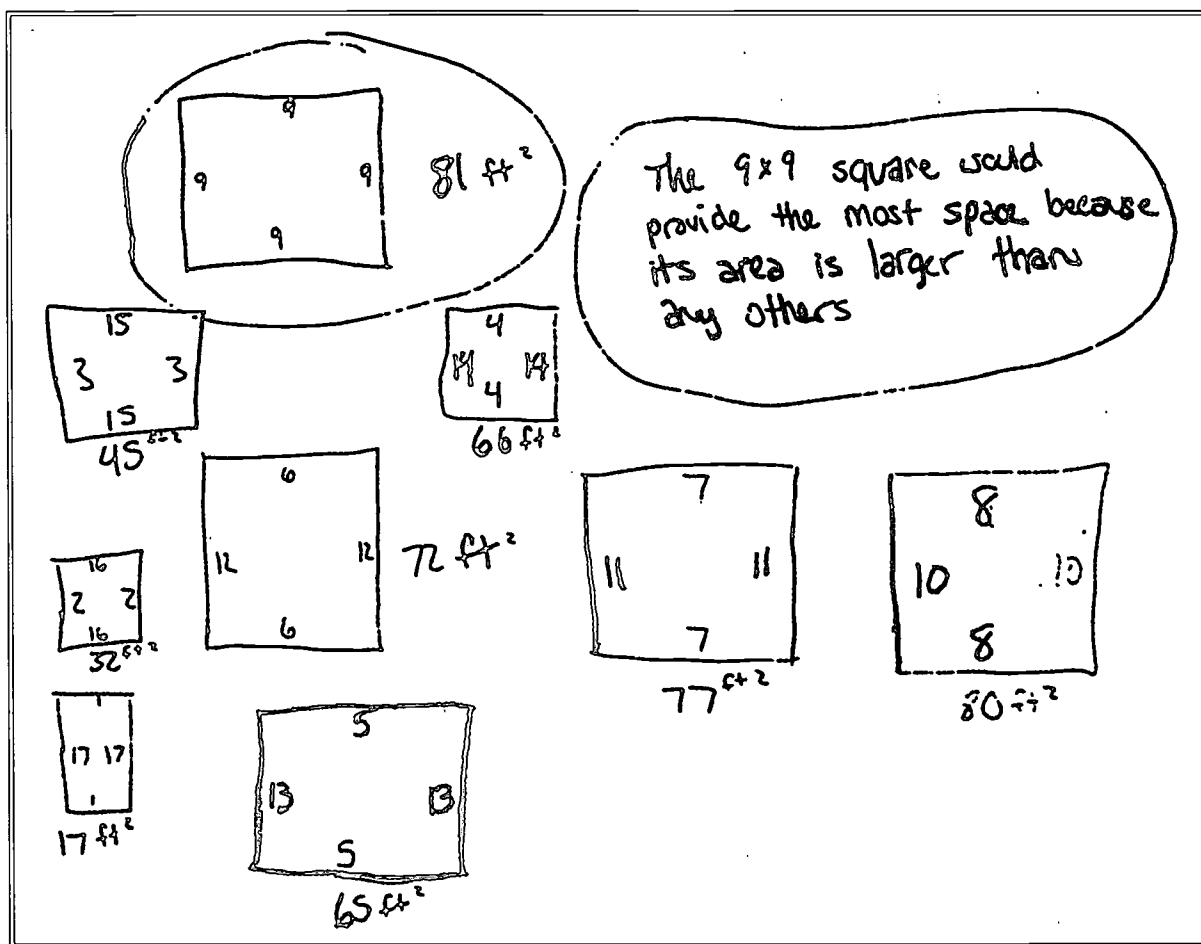 9
9 9 81 ft²
9
The 9x9 square would
provide the most space because
its area is larger than
any others
15
3 3
15
45 ft²
4
14 14
4
66 ft²
6
12 12 72 ft²
6
7
11 11
7
77 ft²
8
10 10
8
80 ft²
16
2 2
16
32 ft²
1
17 17
1
17 ft²
5
13 13
5
65 ft²